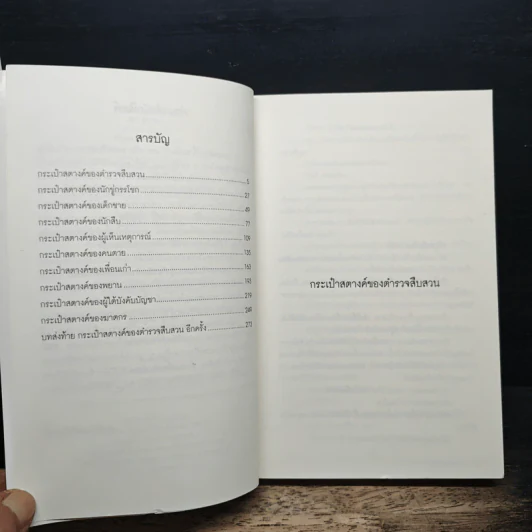 สารบัญ
กระเป๋าสตางค์ของตำรวจสืบสวน 5
กระเป๋าสตางค์ของนักขู่กรรโชก 27
กระเป๋าสตางค์ของเด็กชาย 49
กระเป๋าสตางค์ของนักสืบ 77
กระเป๋าสตางค์ของผู้เห็นเหตุการณ์ 109
กระเป๋าสตางค์ของคนตาย 135
กระเป๋าสตางค์ของเพื่อนเก่า 163
กระเป๋าสตางค์ของพยาน 193
กระเป๋าสตางค์ของผู้ใต้บังคับบัญชา 219
กระเป๋าสตางค์ของฆาตกร 249
บทส่งท้าย กระเป๋าสตางค์ของตำรวจสืบสวน อีกครั้ง 273
กระเป๋าสตางค์ของตำรวจสืบสวน